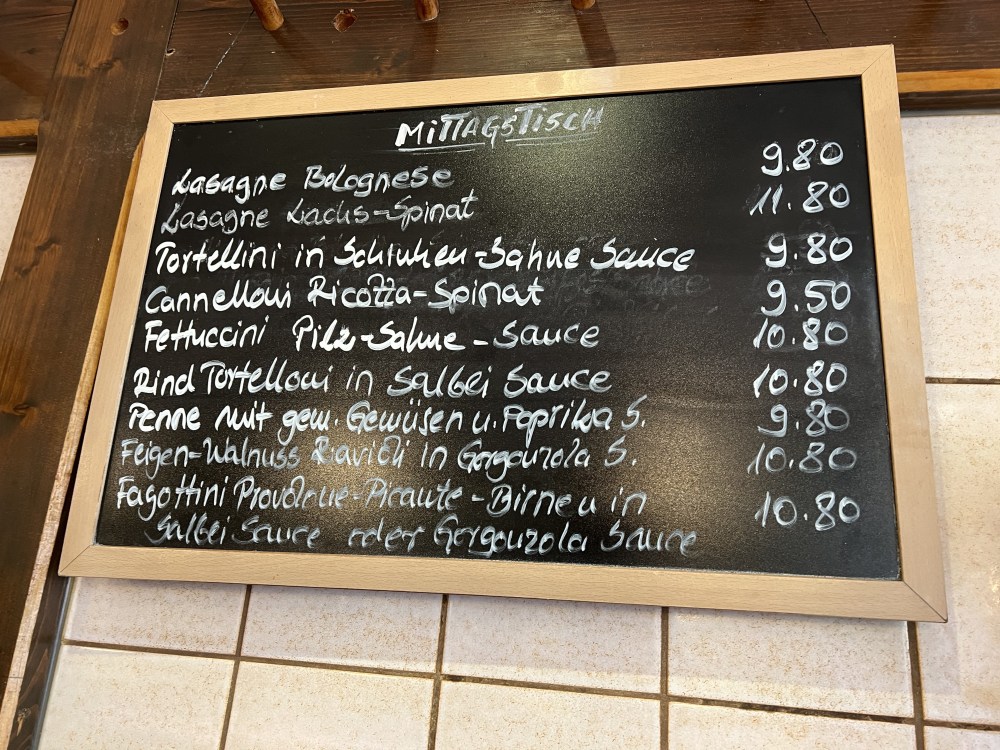 MITTAGSTISCH
Lasagne Bolognese 9.80
Lasagne Lachs-Spinat 11.80
Tortellini in Schinken-Sahne Sauce 9.80
Cannelloni Ricotta-Spinat 9.50
Fettuccini Pilz-Sahne-Sauce 10.80
Rind Tortelloni in Salbei Sauce 10.80
Penne mit gem. Gemüsen u. Paprika S. 9.80
Feigen-Walnuss Ravioli in Gorgonzola S. 10.80
Fagottini Provolone-Picante-Birne u in 10.80
Salbei Sauce oder Gorgonzola Sauce